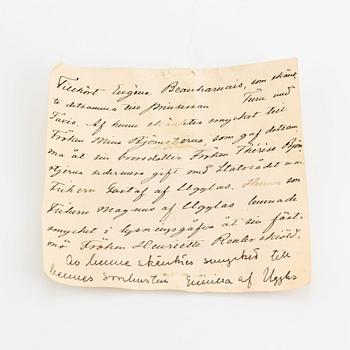 Tillhört Eugène Beauharnais, som skänk
te detsamma till Prinsessan Turn und
Taxis. Af henne skänktes smycket till
Fröken Mina Björnstjerna, som gaf detsam
ma åt sin brorsdotter Fröken Thérèse Björn
stjerna sedermera gift med Statsrådet m.m.
Friherr Gustaf af Ugglas. Hennes son
Friherr Magnus af Ugglas lemnade
smycket i lysningsgåfva åt sin fäst-
mö Fröken Henriette Reuterskiöld.
Av henne skänktes smycket till
hennes sonhustru Emilia af Ugglas